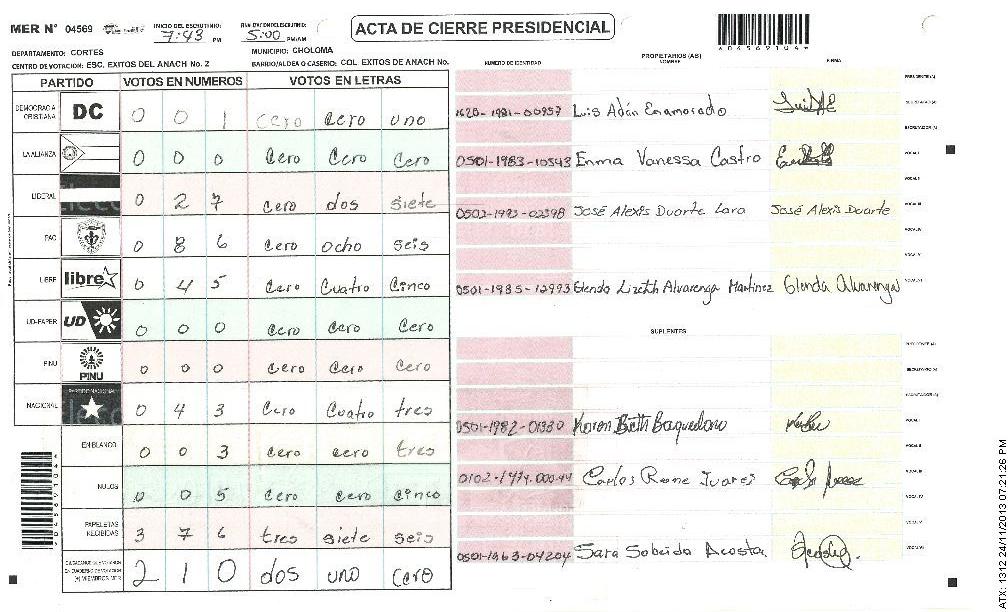 MER N° 04569
INICIO DEL ESCRUTINIO: 7:43 PM
5:00 PM/AM
ACTA DE CIERRE PRESIDENCIAL
DEPARTAMENTO: CORTES
MUNICIPIO: CHOLOMA
CENTRO DE VOTACION: ESC. EXITOS DEL ANACH No. 2
BARRIO/ALDEA O CASERIO: COL. EXITOS DE ANACH No.
PARTIDO VOTOS EN NUMEROS VOTOS EN LETRAS
DEMOCRACIA CRISTIANA DC 0 0 1 cero cero uno
LA ALIANZA 0 0 0 cero cero cero
LIBERAL 0 27 cero dos siete
PAC 0 8 6 cero ocho seis
LIBRE libre 0 4 5 cero cuatro cinco
UD-FAPER UD 0 0 0 cero cero cero
PINU PINU 0 0 0 cero cero cero
NACIONAL 0 4 3 cero cuatro tres
EN BLANCO 0 0 3 cero cero tres
NULOS 0 0 5 cero cero cinco
PAPELETAS RECIBIDAS 3 7 6 tres siete seis
(+) MIEMBROS MER 2 1 0 dos uno cero
PROPIETARIOS (AS)
NUMERO DE IDENTIDAD NOMBRE FIRMA
1981-00957 Luis Adán Enamorado
0501-1983-10543 Enma Vanessa Castro
José Alexis Duarte Lara José Alexis Duarte
0501-1985-12993 Glenda Lizeth Alvarenga Martinez Glenda Alvarenga
SUPLENTES
0501-1982-01380 Karen Baquedano
Carlos Rene Juarez
0501-1963-04204 Sara Sobeida Acosta
ATX: 1312 24/11/2013 07:21:26 PM